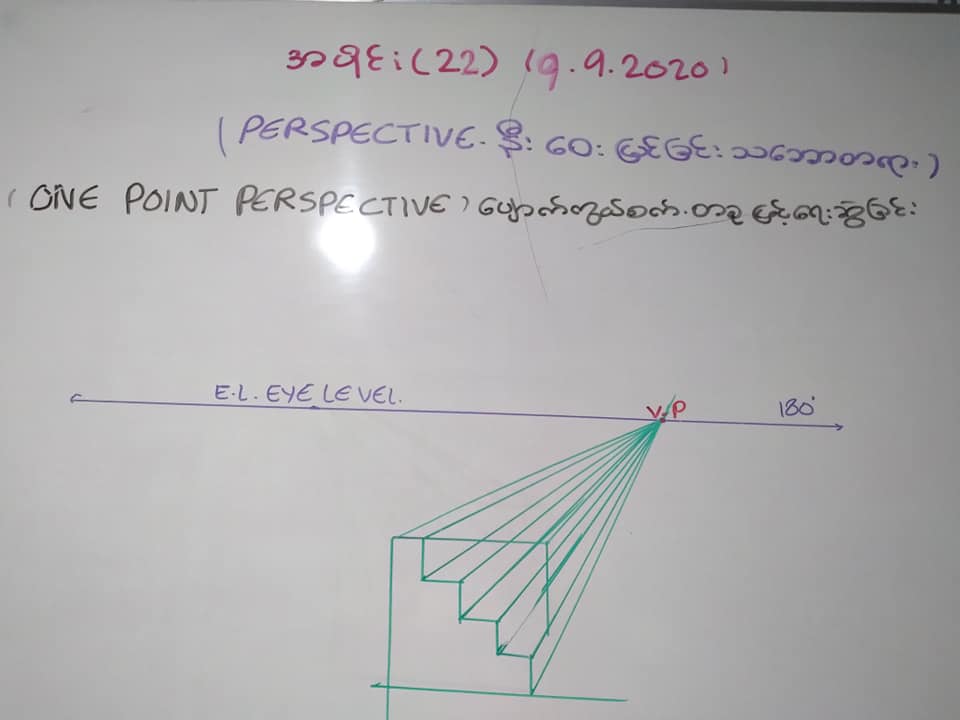 အရှင်း(22) (9.9.2020)
(PERSPECTIVE. နီး ဝေး မြင်ခြင်း သဘောတရား)
(ONE POINT PERSPECTIVE) ပျောက်ကွယ်စက်. တခု ဖြင့်ရေးဆွဲခြင်း
E.L. EYE LEVEL.
V.P
180°